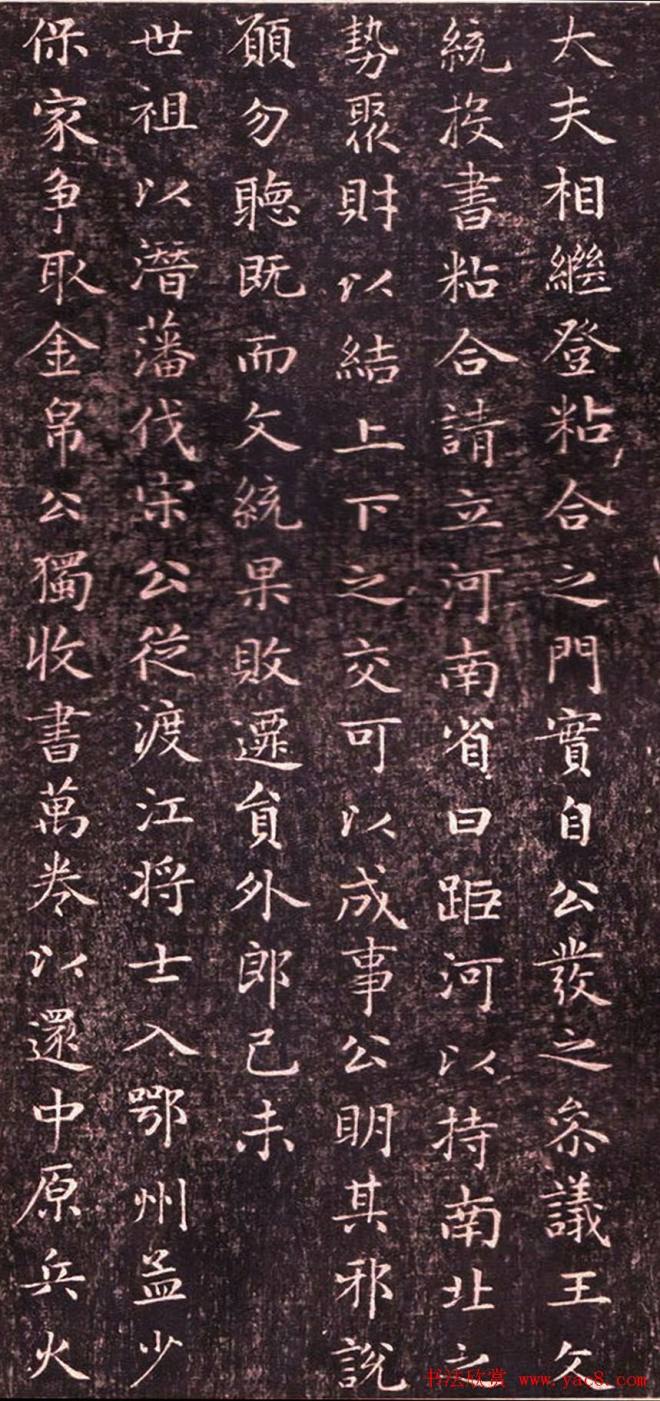 大夫相繼登粘合之門實自公發之叅議王文
統投書粘合請立河南省曰距河以持南北之
勢聚財以結上下之交可以成事公明其邪說
願勿聽既而文統果敗遷貟外郎己未
世祖以潛藩伐宋公從渡江將士入鄂州孟少
保家爭取金帛公獨收書萬卷以還中原兵火
书法欣赏 www.yac8.com